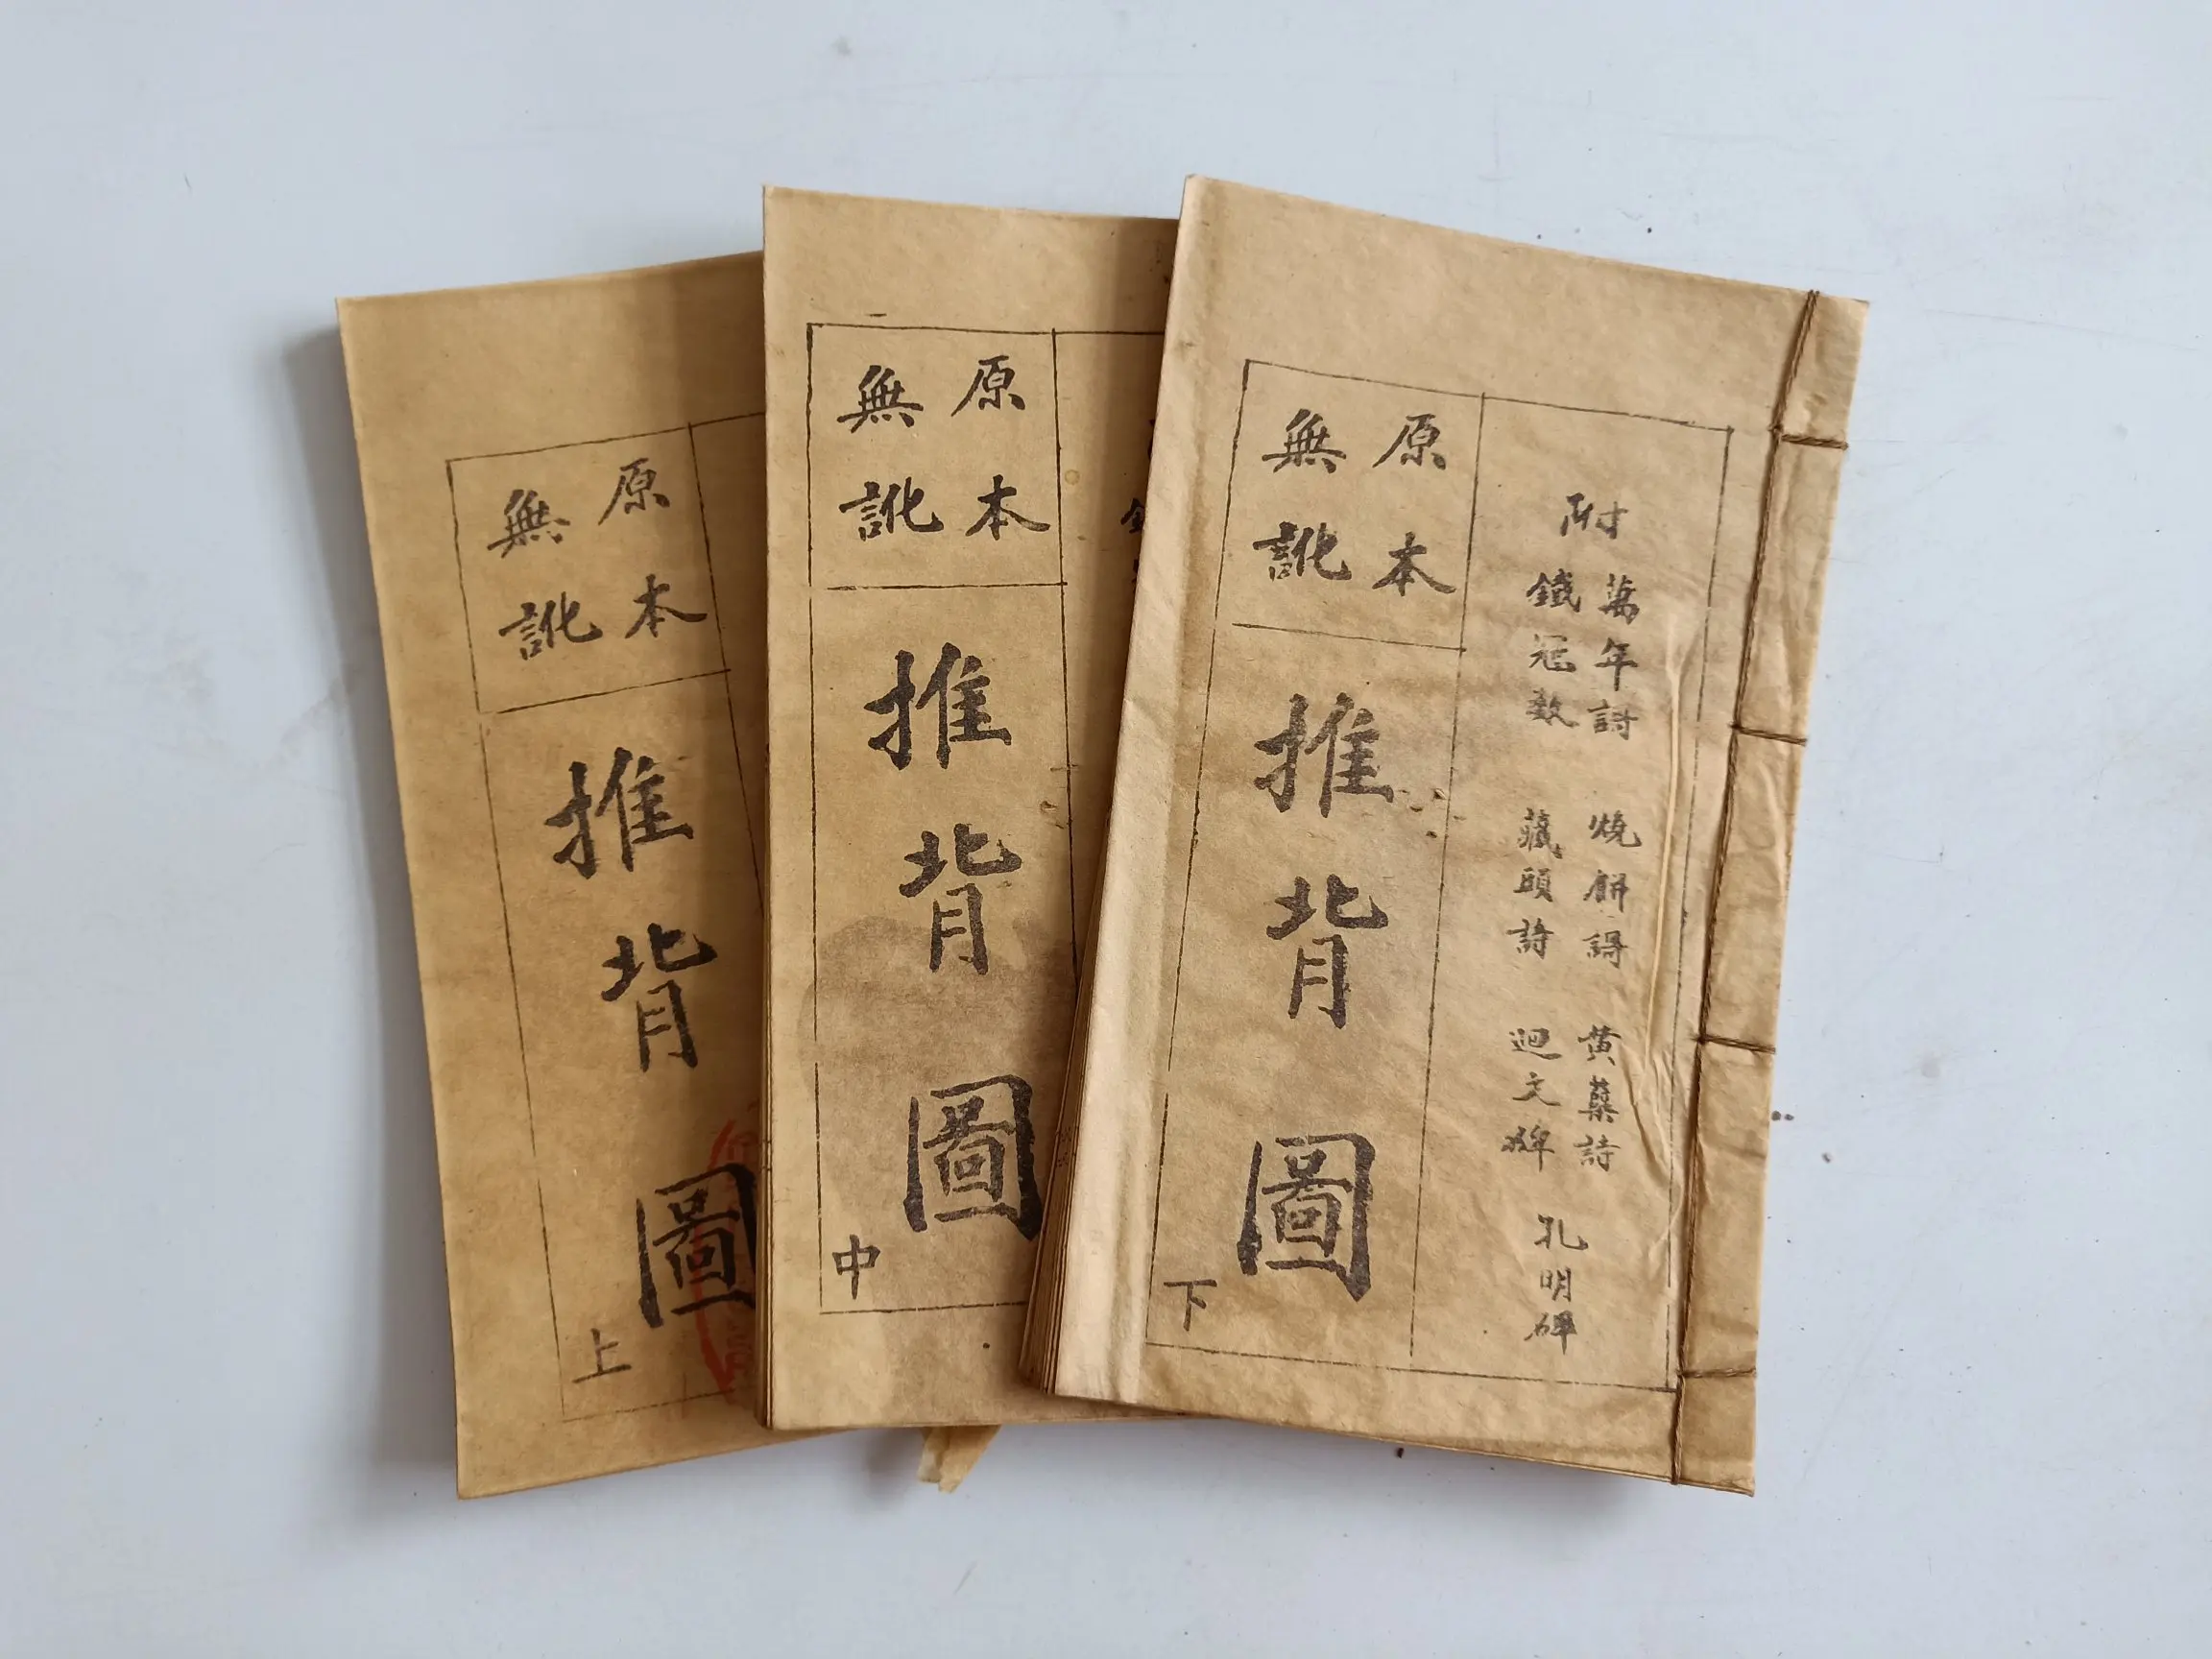 原本
無訛
推背圖
上
原本
無訛
推背圖
中
附
萬年詩 燒餅謌 黄蘗詩
鐵冠数 藏頭詩 迴文碑
孔明碑
原本
無訛
推背圖
下